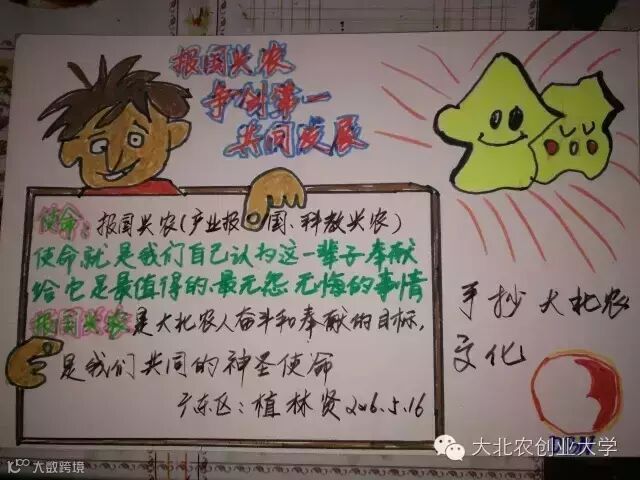 报国兴农
争创第一
共同发展
使命：报国兴农（产业报国、科教兴农）
使命就是我们自己认为这一辈子奉献
给它是最值得的、最无怨无悔的事情
报国兴农是大北农人奋斗和奉献的目标，
是我们共同的神圣使命
广东区：植林贤2016.5.16
手抄大北农
文化
大北农创业大学
大数跨境